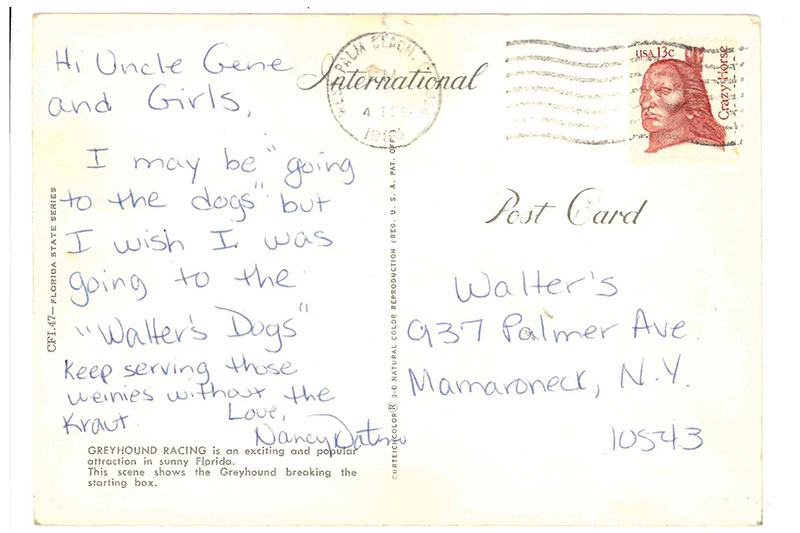 Hi Uncle Gene
and Girls,
I may be "going
to the dogs" but
I wish I was
going to the
"Walter's Dogs"
Keep serving those
weinies without the
Kraut.
Love,
Nancy
GREYHOUND RACING is an exciting and popular
attraction in sunny Florida.
This scene shows the Greyhound breaking the
starting box.
CFI.47—FLORIDA STATE SERIES
CURTEICHCOLOR® 3-D NATURAL COLOR REPRODUCTION (REG. U. S. A. PAT. OFF
International
PALM BEACH,
USA 13c
Crazy Horse
Post Card
Walter's
937 Palmer Ave.
Mamaroneck, N.Y.
10543